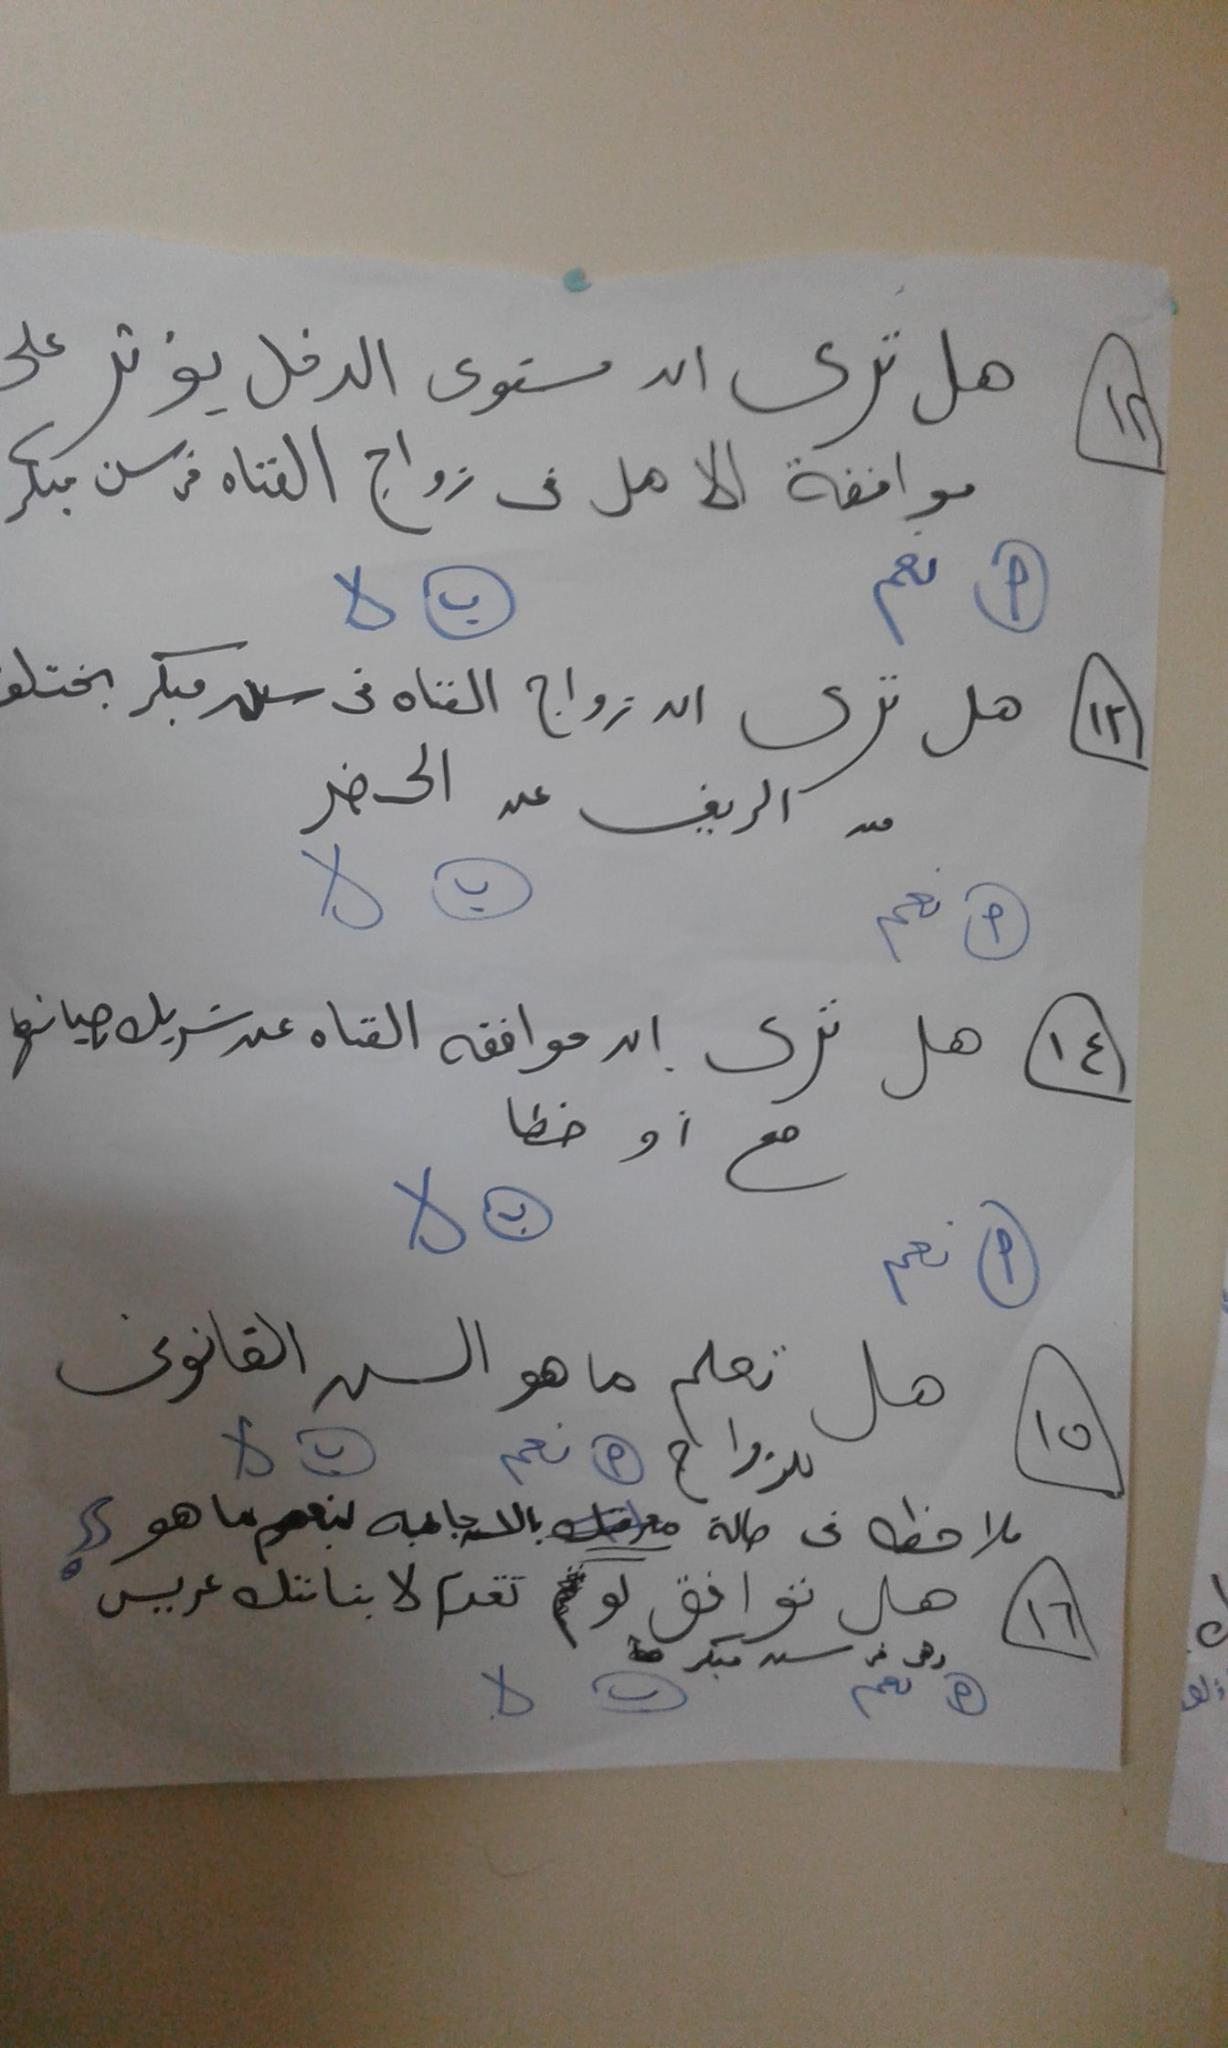 ١٢ هل ترى ان مستوى الدخل يؤثر على
موافقة الاهل فى زواج الفتاه فى سن مبكر
أ نعم ب لا
١٣ هل ترى ان زواج الفتاه فى سن مبكر يختلف
من الريف عن الحضر
أ نعم ب لا
١٤ هل ترى ان موافقه الفتاه عن شريك حياتها
صح أو خطا
أ نعم ب لا
١٥ هل تعلم ما هو السن القانونى
للزواج أ نعم ب لا
ملاحظه فى حالة بالاجابه بنعم ما هو ؟
١٦ هل توافق لو تقدم لابنتك عريس
وهى فى سن مبكر
أ نعم ب لا